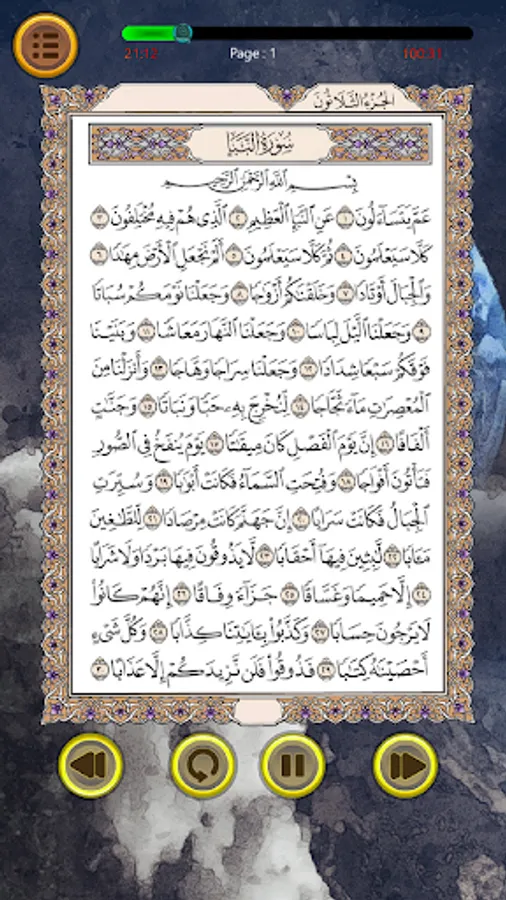 21:12
Page : 1
100:31
الجزء الثلاثون
سورة النبإ
بسم الله الرحمن الرحيم
عَمَّ يَتَسَآءَلُونَ ١ عَنِ ٱلنَّبَإِ ٱلۡعَظِيمِ ٢ ٱلَّذِي هُمۡ فِيهِ مُخۡتَلِفُونَ ٣
كَلَّا سَيَعۡلَمُونَ ٤ ثُمَّ كَلَّا سَيَعۡلَمُونَ ٥ أَلَمۡ نَجۡعَلِ ٱلۡأَرۡضَ مِهَٰدٗا ٦
وَٱلۡجِبَالَ أَوۡتَادٗا ٧ وَخَلَقۡنَٰكُمۡ أَزۡوَٰجٗا ٨ وَجَعَلۡنَا نَوۡمَكُمۡ سُبَاتٗا
٩ وَجَعَلۡنَا ٱلَّيۡلَ لِبَاسٗا ١٠ وَجَعَلۡنَا ٱلنَّهَارَ مَعَاشٗا ١١ وَبَنَيۡنَا
فَوۡقَكُمۡ سَبۡعٗا شِدَادٗا ١٢ وَجَعَلۡنَا سِرَاجٗا وَهَّاجٗا ١٣ وَأَنزَلۡنَا مِنَ
ٱلۡمُعۡصِرَٰتِ مَآءٗ ثَجَّاجٗا ١٤ لِّنُخۡرِجَ بِهِۦ حَبّٗا وَنَبَاتٗا ١٥ وَجَنَّٰتٍ
أَلۡفَافًا ١٦ إِنَّ يَوۡمَ ٱلۡفَصۡلِ كَانَ مِيقَٰتٗا ١٧ يَوۡمَ يُنفَخُ فِي ٱلصُّورِ
فَتَأۡتُونَ أَفۡوَاجٗا ١٨ وَفُتِحَتِ ٱلسَّمَآءُ فَكَانَتۡ أَبۡوَٰبٗا ١٩ وَسُيِّرَتِ
ٱلۡجِبَالُ فَكَانَتۡ سَرَابًا ٢٠ إِنَّ جَهَنَّمَ كَانَتۡ مِرۡصَادٗا ٢١ لِّلطَّٰغِينَ
مَـَٔابٗا ٢٢ لَّٰبِثِينَ فِيهَآ أَحۡقَابٗا ٢٣ لَّا يَذُوقُونَ فِيهَا بَرۡدٗا وَلَا شَرَابًا
٢٤ إِلَّا حَمِيمٗا وَغَسَّاقٗا ٢٥ جَزَآءٗ وِفَاقًا ٢٦ إِنَّهُمۡ كَانُواْ
لَا يَرۡجُونَ حِسَابٗا ٢٧ وَكَذَّبُواْ بِـَٔايَٰتِنَا كِذَّابٗا ٢٨ وَكُلَّ شَيۡءٍ
أَحۡصَيۡنَٰهُ كِتَٰبٗا ٢٩ فَذُوقُواْ فَلَن نَّزِيدَكُمۡ إِلَّا عَذَابًا ٣٠